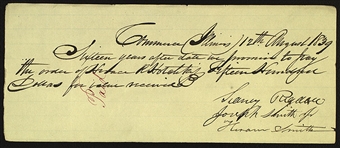 Commerce Illinois 12th August 1839
Sixteen years after date we promise to pay
the order of Horace R Hotchkiss Fifteen Hundred
Dollars for value received
Paid
Sidney Rigdon
Joseph Smith Jr
Hiram Smith